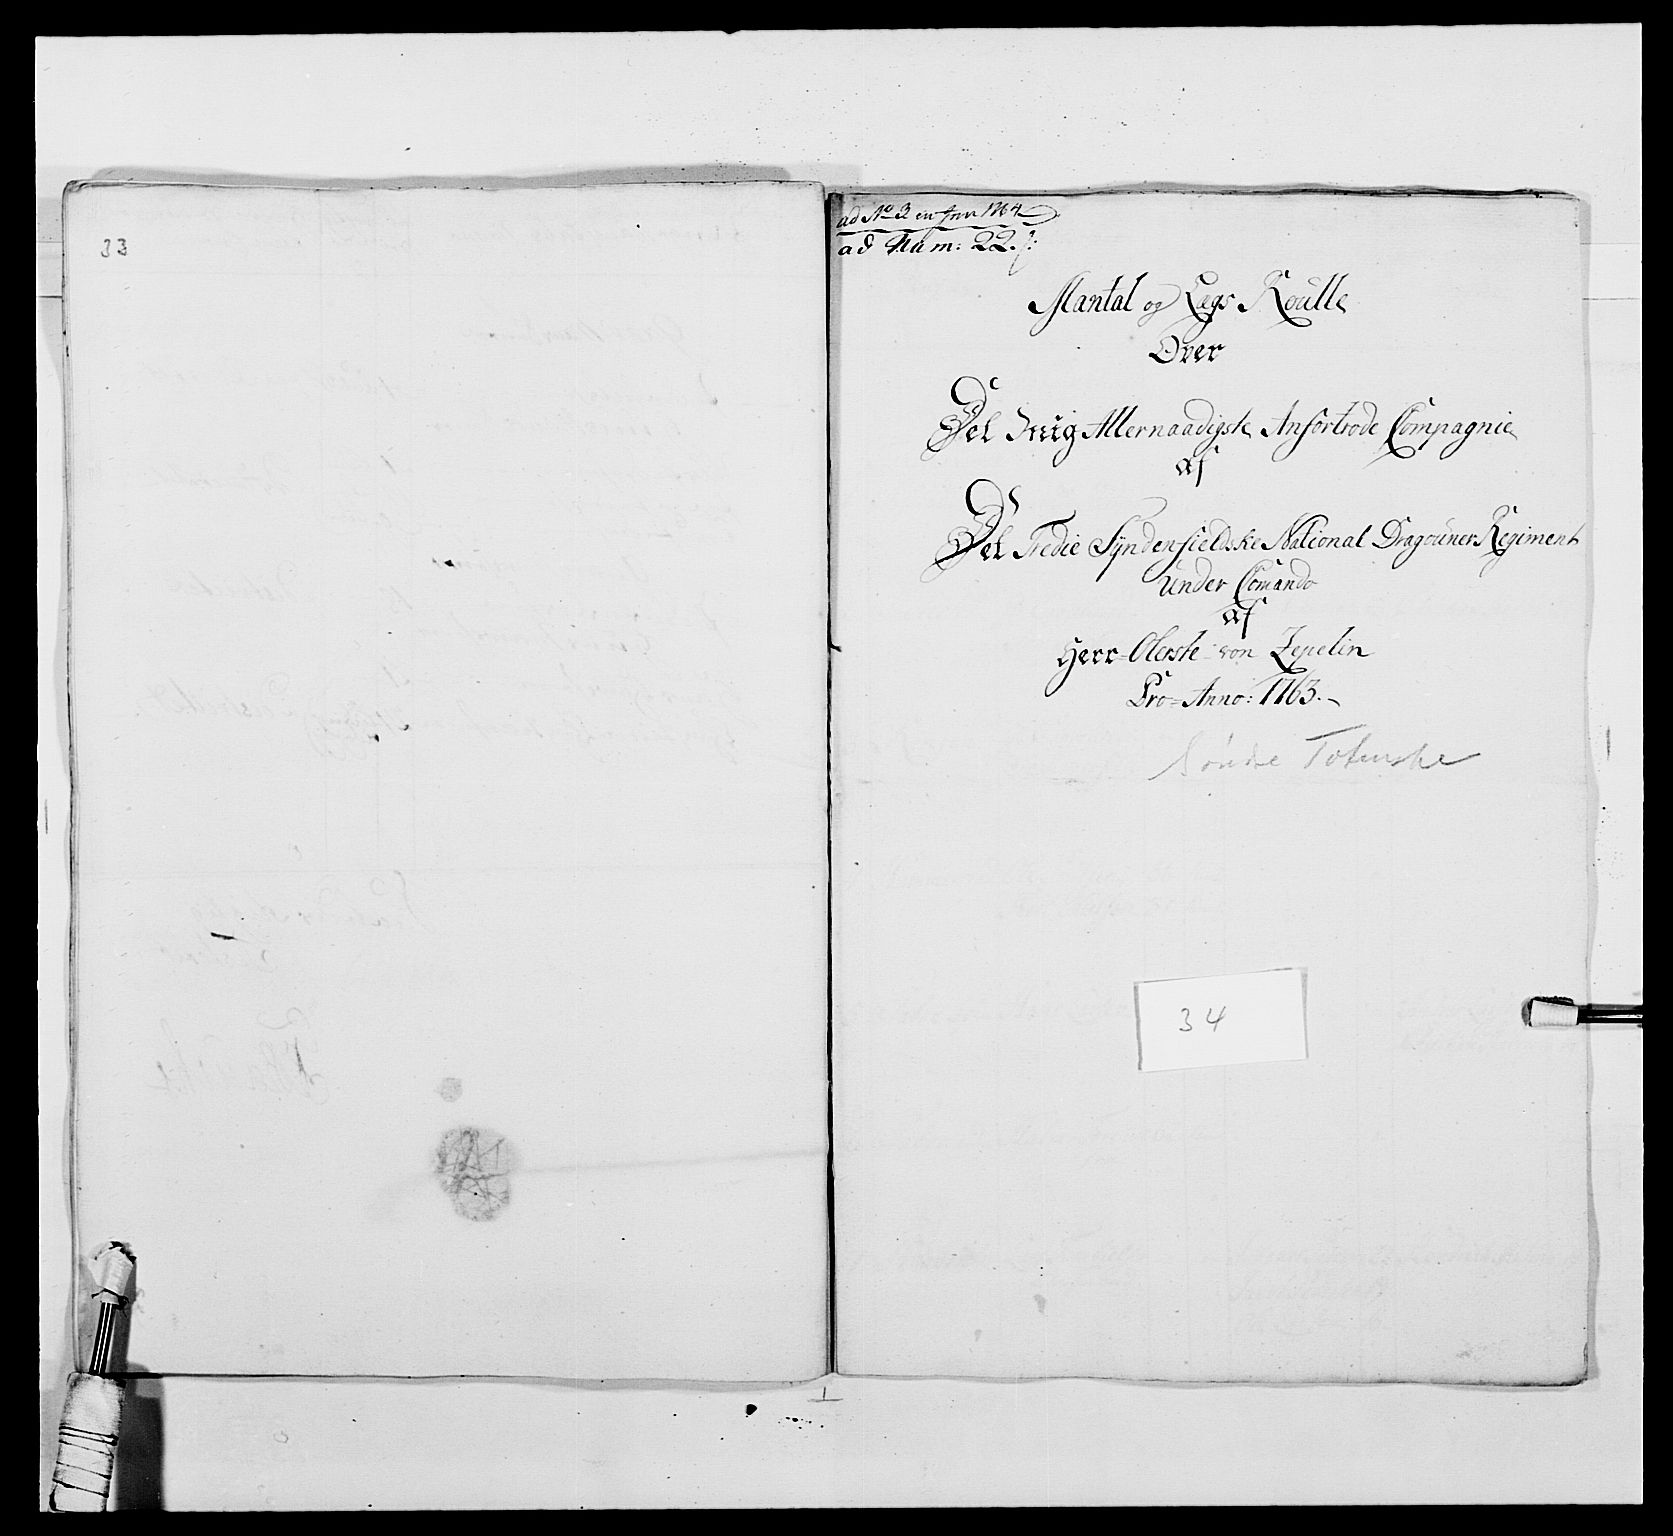 33
ad No 3 Jan 1764
ad Num: 22.
Mantal og Lægs Roulle
Over
Det Mig Allernaadigste Anfortrode Compagnie
af
Det Tredie Syndenfieldske National Dragouner Regiment
under Comando
af
Herr Oberste von Zepelin
Pro Anno: 1763.
Søndre Totenske
34